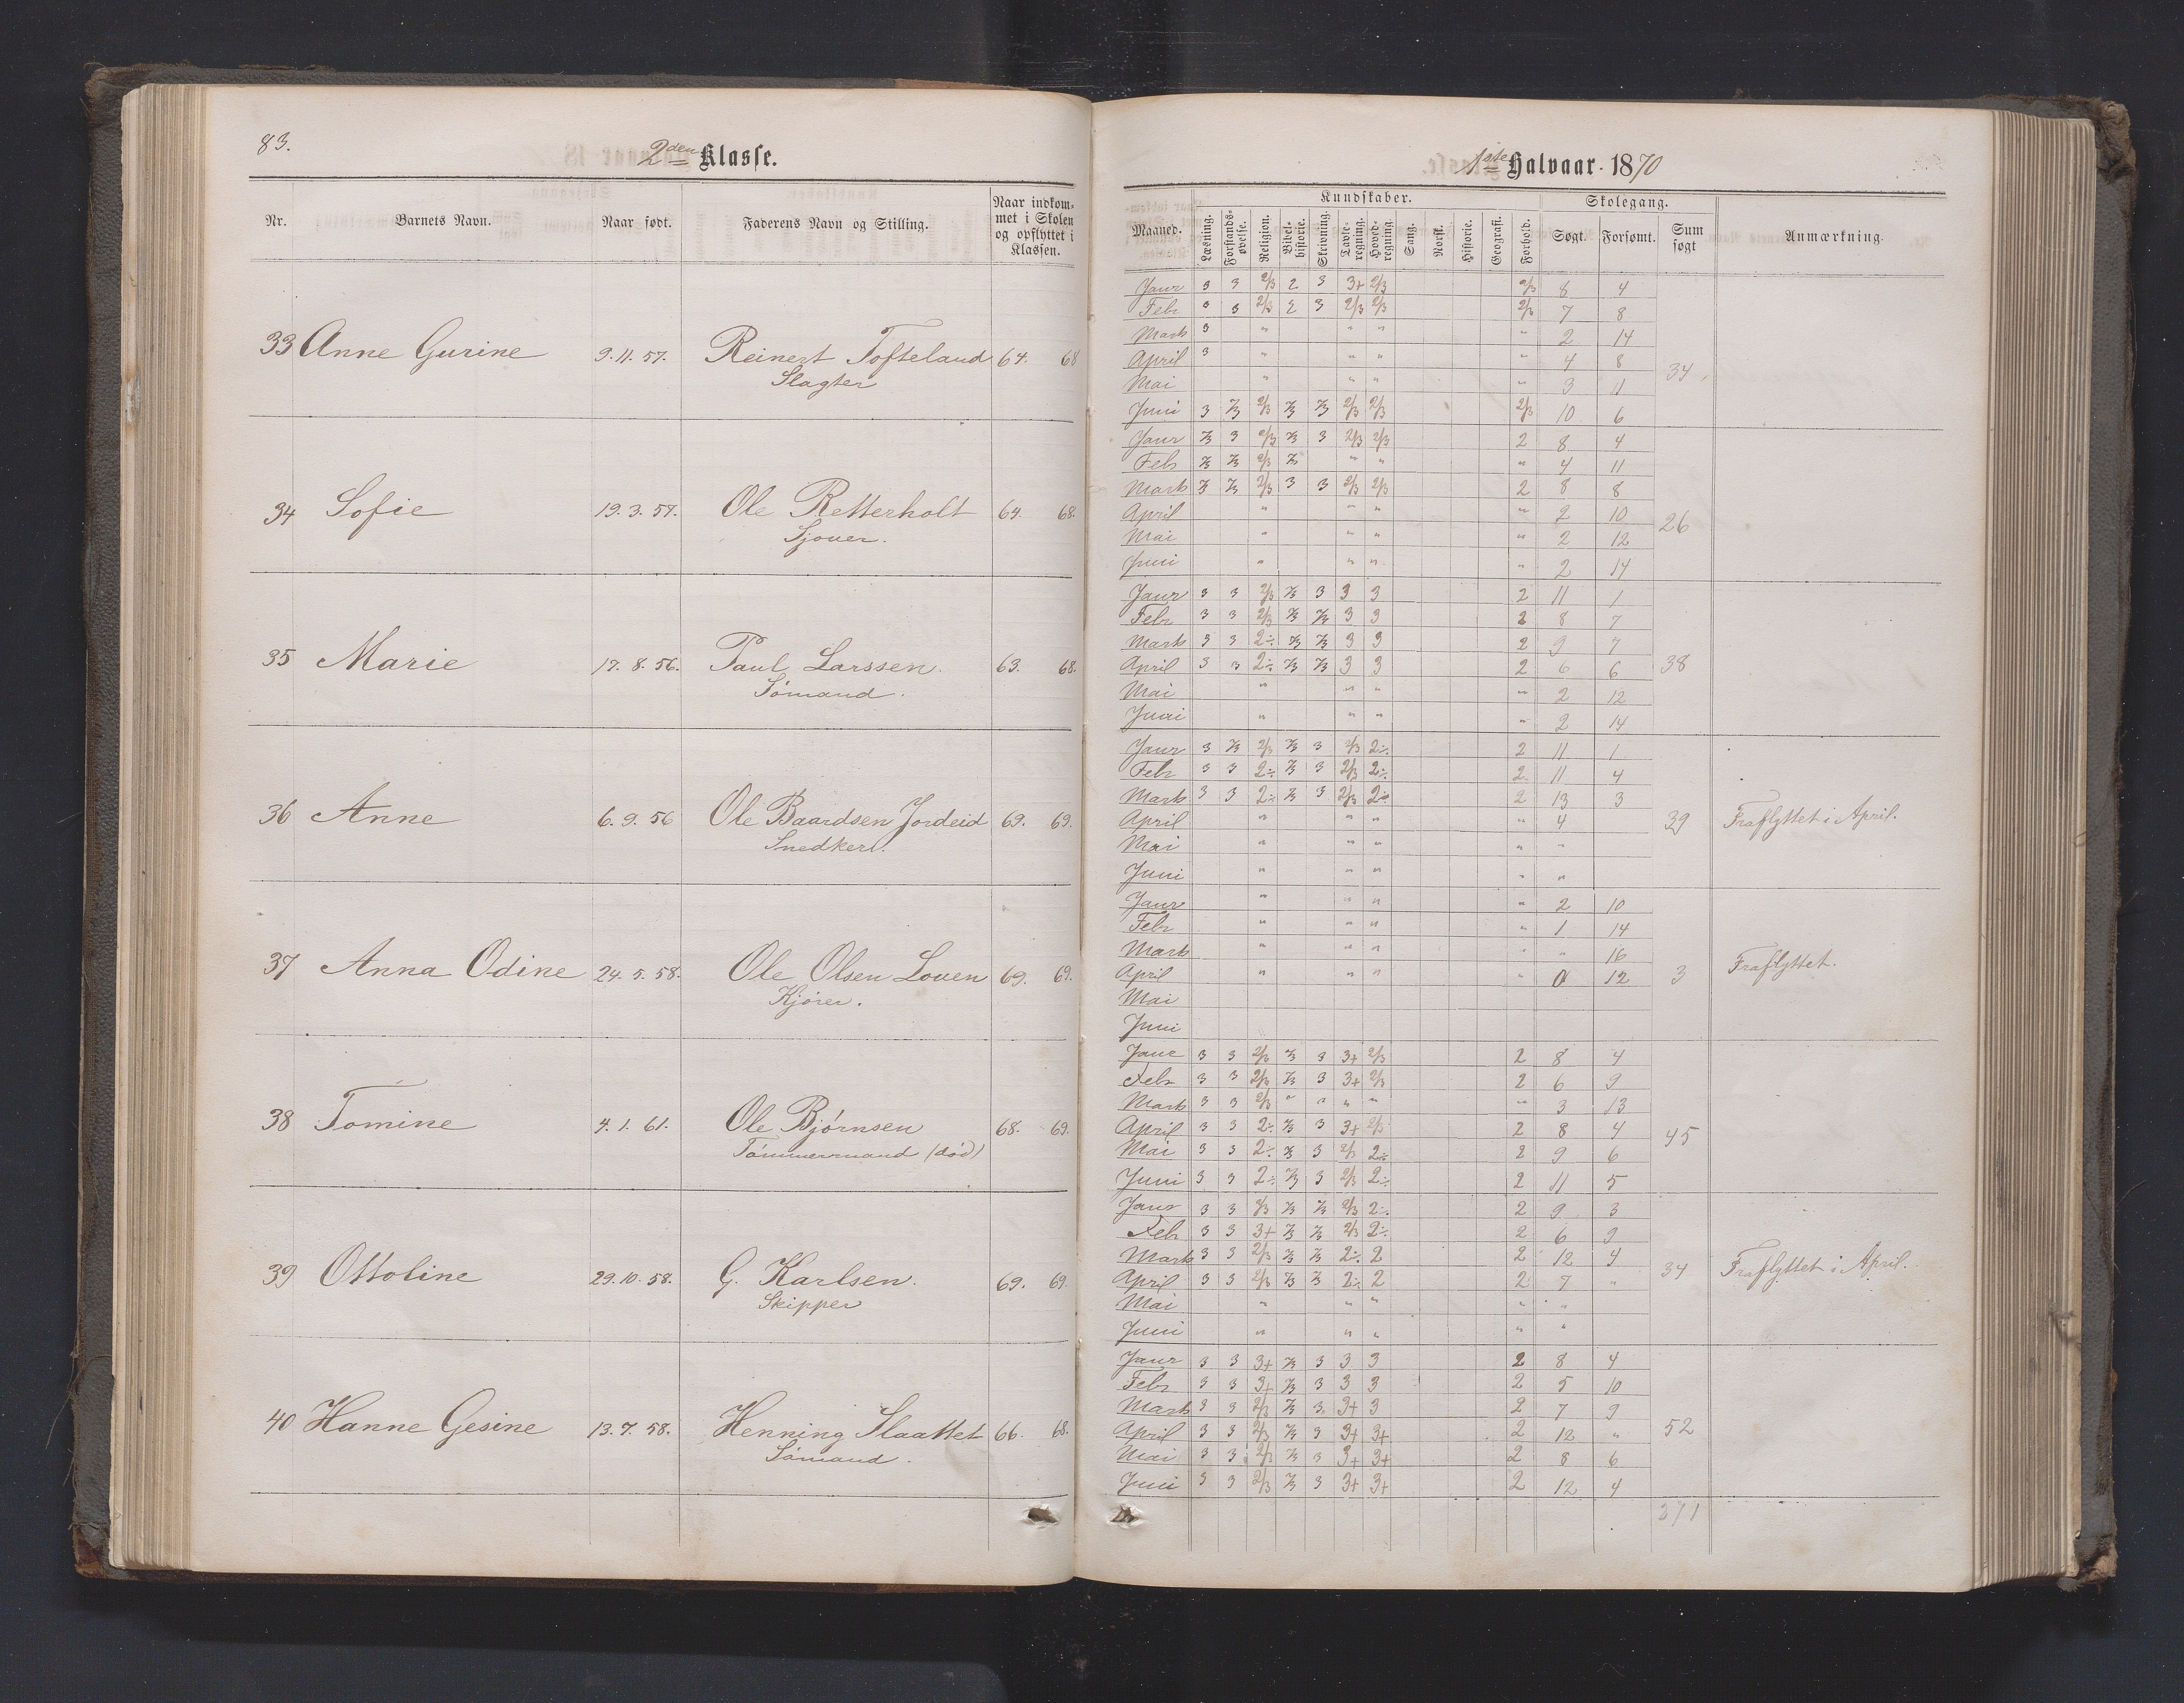 83.
2den Klasse.
Nr. Barnets Navn. Naar født. Faderens Navn og Stilling. Naar indkom-
met i Skolen
og opflyttet i
Klassen.
33 Anne Gurine 9.11.57. Reinert Tofteland 64. 68
Slagter
34 Sofie 19.3.57. Ole Retterholt 64. 68.
Sjouer.
35 Marie 17.8.56. Paul Larssen. 63. 68.
Sømand.
36 Anne 6.9.56 Ole Baardsen Jordeid 69. 69.
Snedker.
37 Anna Odine 24.5.58. Ole Olsen Louen 69. 69.
Kjører.
38 Tomine 4.1.61. Ole Bjørnsen 68. 69.
Tømmermand (død)
39 Ottoline 29.10.58. G. Karlsen. 69. 69.
Skipper
40 Hanne Gesine 13.7.58. Henning Slaattet 66. 68.
Sømand.
1ste Halvaar 1870
Kundskaber. Skolegang.
Maaned. Læsning. Forstands-øvelse. Religion. Bibel-historie. Skrivning. Tavle-regning. Hoved-regning. Sang. Norsk. Historie. Geografi. Forhold. Søgt. Forsømt. Sum søgt Anmærkning.
Janr 3 3 2/3 2 3 3+ 2/3 2/3 8 4
Febr 3 3 2/3 2 3 2/3 2/3 2/3 7 8
Marts 3 " " " " 2 14
April 3 " " " " 4 8
34
Mai " " " " 3 11
Juni 3 2/3 2/3 2/3 2/3 2/3 2/3 2/3 10 6
Janr 2/3 3 2/3 2/3 3 2/3 2/3 2 8 4
Feb 2/3 2/3 2/3 2/3 " " " 4 11
Marts 2/3 2/3 2/3 3 3 2/3 2/3 2 8 8
April " " " " 2 10
26
Mai " " " " 2 12
Juni " " " " 2 14
Janr 3 3 2/3 2/3 3 3 3 2 11 1
Febr 3 3 2/3 2/3 2/3 3 3 2 8 7
Marts 3 3 2÷ 2/3 2/3 3 3 2 9 7
April 3 3 2÷ 2/3 2/3 3 3 2 6 6 38
Mai " " " " 2 12
Juni " " " " 2 14
Janr 3 2/3 2/3 2/3 3 2/3 2÷ 2 11 1
Febr 3 3 2÷ 2/3 3 2/3 2÷ 2 11 4
Marts 3 3 2÷ 2/3 3 2/3 2÷ 2 13 3
April " " " " 4 39 Fraflyttet i April.
Mai " " " " "
Juni " " " " "
Janr " " " " 2 10
Febr " " " " 1 14
Marts " " " " " 16
April " " " " 0 12 3 Fraflyttet.
Mai
Juni
Janr 3 3 2/3 2/3 3 3+ 2/3 2 8 4
Febr 3 3 2/3 2/3 3 3+ 2/3 2 6 9
Marts 3 3 2/3 " " " " " 3 13
April 3 3 2÷ 2/3 3 3+ 2/3 2 8 4 45
Mai 3 3 2÷ 2/3 3 2/3 2÷ 2 9 6
Juni 3 3 2÷ 2/3 3 2/3 2÷ 2 11 5
Janr 3 3 2/3 2/3 2/3 2/3 2÷ 2 9 3
Feb 3 3 3+ 2/3 2/3 2/3 2÷ 2 6 9
Marts 3 3 2/3 2/3 2/3 2÷ 2 2 12 4
April 3 3 2/3 2/3 2/3 2÷ 2 2 7 " 34 Fraflyttet i April.
Mai " " " " "
Juni " " " " "
Janr 3 3 3+ 2/3 3 3 3 2 8 4
Febr 3 3 3+ 2/3 3 3 3 2 5 10
Marts 3 3 2/3 2/3 3 3+ 3 2 7 9
April 3 3 2/3 2/3 3 3+ 3+ 2 12 " 52
Mai 3 3 2/3 2/3 3 3+ 3+ 2 8 6
Juni 3 3 2/3 2/3 3 3+ 3+ 2 12 4
371